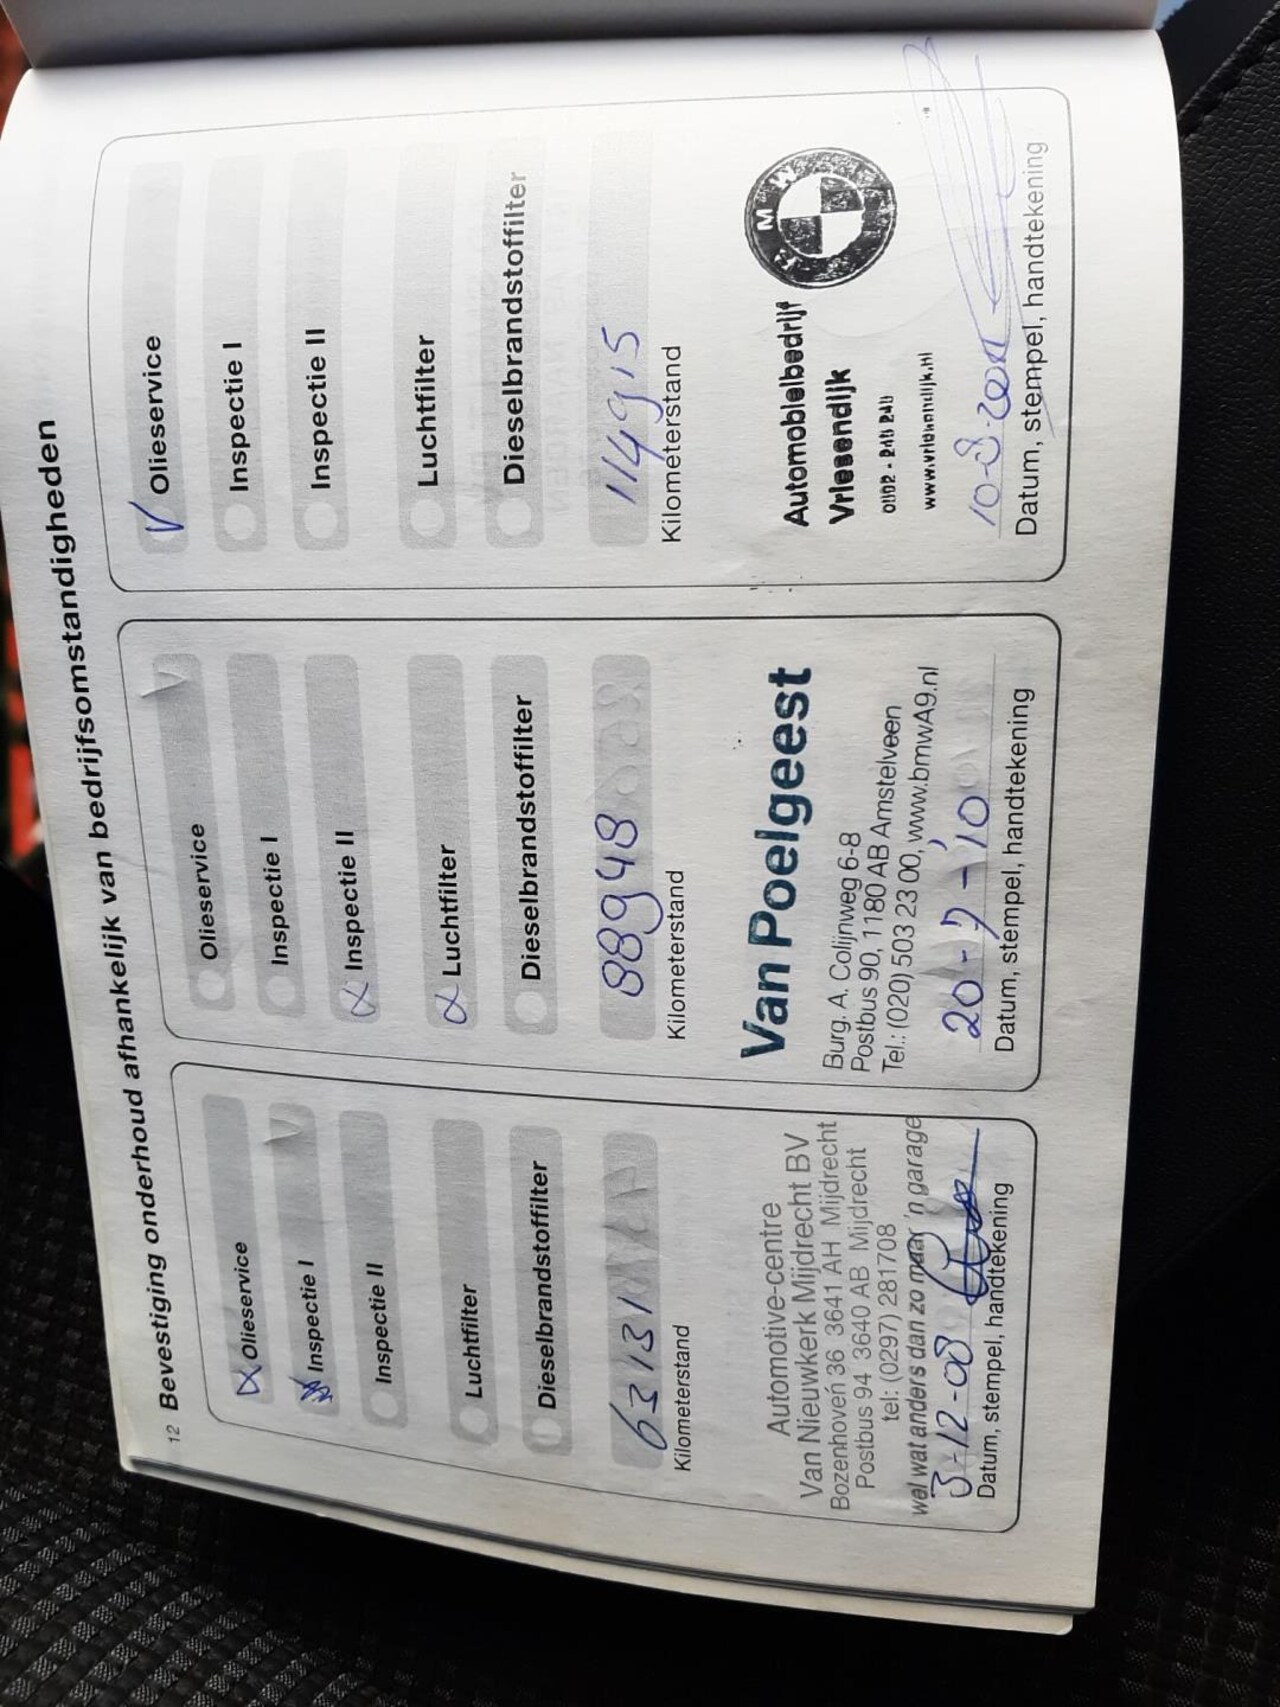 12 Bevestiging onderhoud afhankelijk van bedrijfsomstandigheden
Olieservice
Inspectie I
Inspectie II
Luchtfilter
Dieselbrandstoffilter
63131
Kilometerstand
Automotive-centre
Van Nieuwkerk Mijdrecht BV
Bozenhoven 36 3641 AH Mijdrecht
Postbus 94 3640 AB Mijdrecht
tel: (0297) 281708
wel wat anders dan zo maar 'n garage
3-12-08
Datum, stempel, handtekening
Olieservice
Inspectie I
Inspectie II
Luchtfilter
Dieselbrandstoffilter
88948
Kilometerstand
Van Poelgeest
Burg. A. Colijnweg 6-8
Postbus 90, 1180 AB Amstelveen
Tel.: (020) 503 23 00, www.bmwA9.nl
20-7-'10
Datum, stempel, handtekening
Olieservice
Inspectie I
Inspectie II
Luchtfilter
Dieselbrandstoffilter
114915
Kilometerstand
BMW
Automobielbedrijf
Vriesendijk
10-8-
Datum, stempel, handtekening